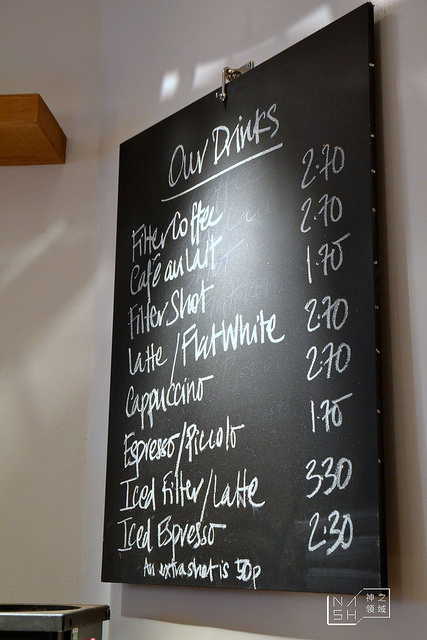 Our Drinks
Filter Coffee 2.70
Café au lait 2.70
Filter Shot 1.70
Latte / Flat White 2.70
Cappuccino 2.70
Espresso/Piccolo 1.70
Iced Filter/Latte 3.30
Iced Espresso 2.30
An extra shot is 50p
NASH 神之領域